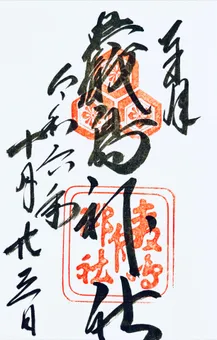 奉拝
厳島神社
令和六年
十月廿三日
嚴島
神社